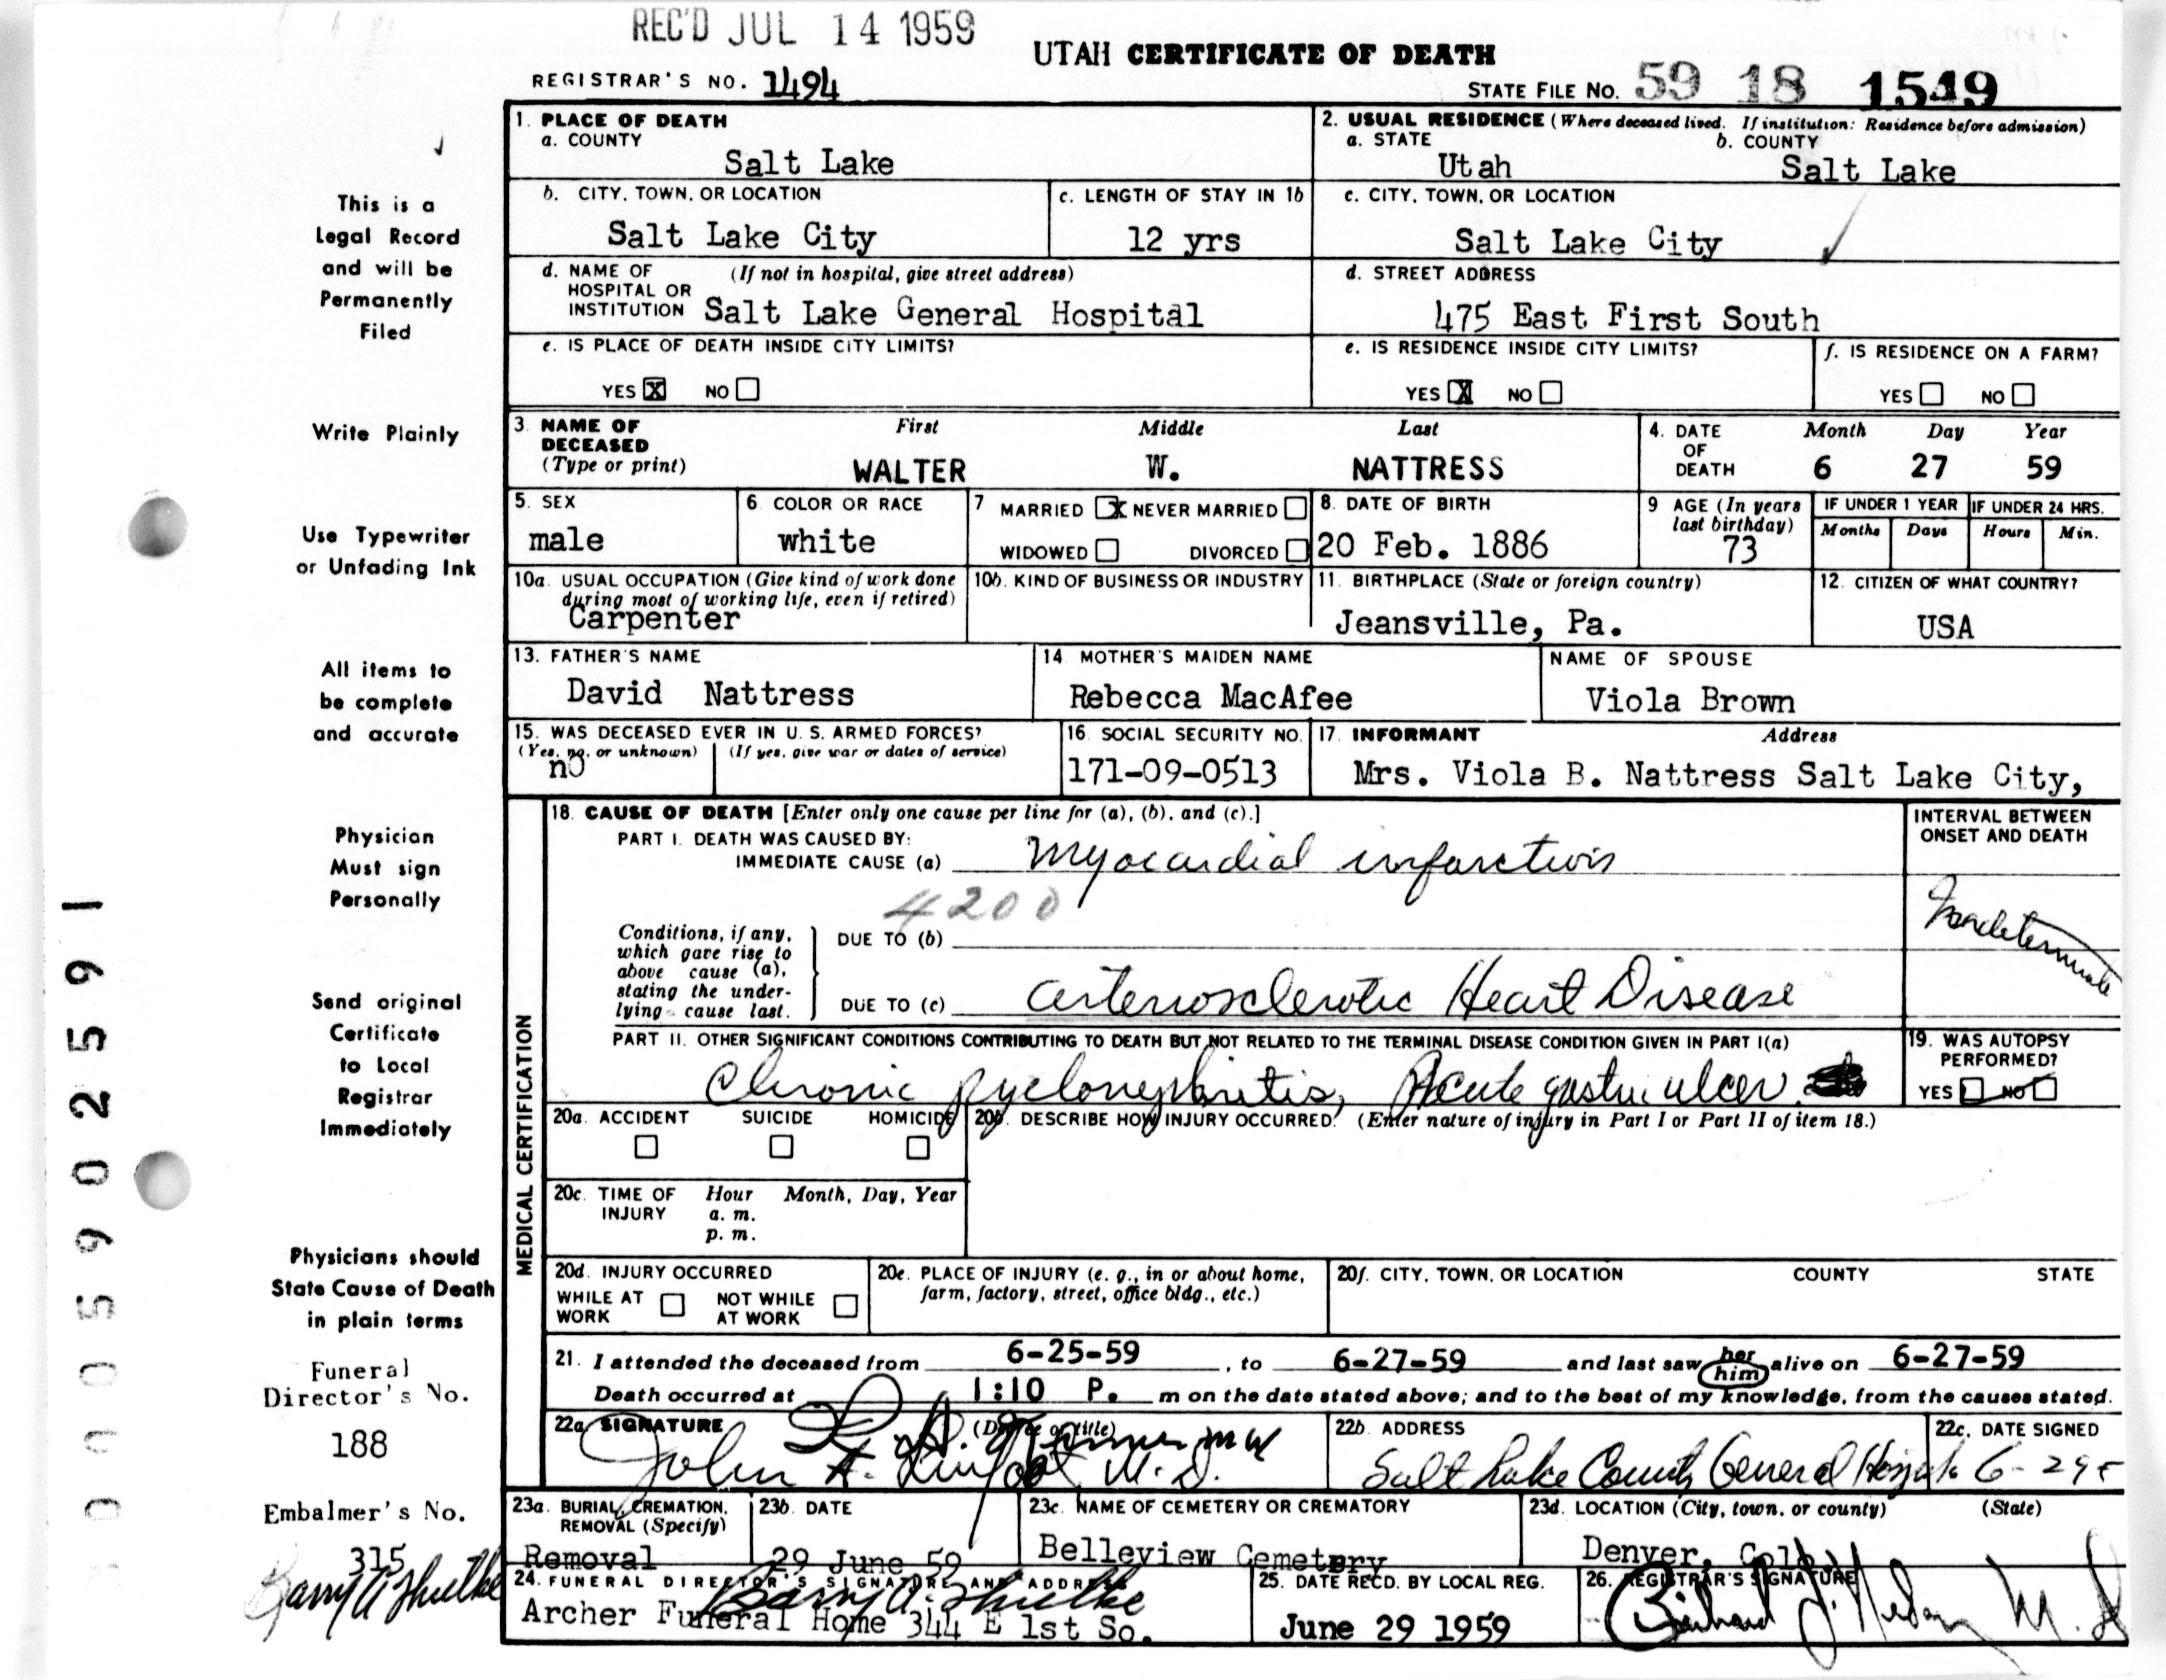 REC'D JUL 14 1959
UTAH CERTIFICATE OF DEATH
REGISTRAR'S NO. 1494
STATE FILE NO. 59 18 1549
1. PLACE OF DEATH
a. COUNTY
Salt Lake
2. USUAL RESIDENCE (Where deceased lived. If institution: Residence before admission)
a. STATE b. COUNTY
Utah Salt Lake
b. CITY, TOWN, OR LOCATION
Salt Lake City
c. LENGTH OF STAY IN 1b
12 yrs
c. CITY, TOWN, OR LOCATION
Salt Lake City
d. NAME OF (If not in hospital, give street address)
HOSPITAL OR
INSTITUTION Salt Lake General Hospital
d. STREET ADDRESS
475 East First South
e. IS PLACE OF DEATH INSIDE CITY LIMITS?
YES X NO
e. IS RESIDENCE INSIDE CITY LIMITS?
YES X NO
f. IS RESIDENCE ON A FARM?
YES NO
3. NAME OF First Middle Last
DECEASED
(Type or print) WALTER W. NATTRESS
4. DATE Month Day Year
OF
DEATH 6 27 59
5. SEX
male
6. COLOR OR RACE
white
7. MARRIED X NEVER MARRIED
WIDOWED DIVORCED
8. DATE OF BIRTH
20 Feb. 1886
9. AGE (In years
last birthday)
73
IF UNDER 1 YEAR
Months Days
IF UNDER 24 HRS.
Hours Min.
10a. USUAL OCCUPATION (Give kind of work done
during most of working life, even if retired)
Carpenter
10b. KIND OF BUSINESS OR INDUSTRY
11. BIRTHPLACE (State or foreign country)
Jeansville, Pa.
12. CITIZEN OF WHAT COUNTRY?
USA
13. FATHER'S NAME
David Nattress
14. MOTHER'S MAIDEN NAME
Rebecca MacAfee
NAME OF SPOUSE
Viola Brown
15. WAS DECEASED EVER IN U. S. ARMED FORCES?
(Yes, no, or unknown) (If yes, give war or dates of service)
no
16. SOCIAL SECURITY NO.
171-09-0513
17. INFORMANT Address
Mrs. Viola B. Nattress Salt Lake City,
MEDICAL CERTIFICATION
18. CAUSE OF DEATH [Enter only one cause per line for (a), (b), and (c).]
PART I. DEATH WAS CAUSED BY:
IMMEDIATE CAUSE (a) Myocardial infarction
4200
Conditions, if any,
which gave rise to
above cause (a),
stating the under-
lying cause last.
DUE TO (b)
DUE TO (c) Arteriosclerotic Heart Disease
INTERVAL BETWEEN
ONSET AND DEATH
Indeterminate
PART II. OTHER SIGNIFICANT CONDITIONS CONTRIBUTING TO DEATH BUT NOT RELATED TO THE TERMINAL DISEASE CONDITION GIVEN IN PART I(a)
Chronic pyelonephritis, Acute gastric ulcer
19. WAS AUTOPSY
PERFORMED?
YES NO
20a. ACCIDENT SUICIDE HOMICIDE
20b. DESCRIBE HOW INJURY OCCURRED. (Enter nature of injury in Part I or Part II of item 18.)
20c. TIME OF Hour Month, Day, Year
INJURY a. m.
p. m.
20d. INJURY OCCURRED
WHILE AT NOT WHILE
WORK AT WORK
20e. PLACE OF INJURY (e. g., in or about home,
farm, factory, street, office bldg., etc.)
20f. CITY, TOWN, OR LOCATION COUNTY STATE
21. I attended the deceased from 6-25-59, to 6-27-59 and last saw her him alive on 6-27-59
Death occurred at 1:10 P. m on the date stated above; and to the best of my knowledge, from the causes stated.
22a. SIGNATURE (Degree or title)
John M.D.
22b. ADDRESS
Salt Lake County General Hospital
22c. DATE SIGNED
6-29-5
23a. BURIAL, CREMATION,
REMOVAL (Specify)
Removal
23b. DATE
29 June 59
23c. NAME OF CEMETERY OR CREMATORY
Belleview Cemetery
23d. LOCATION (City, town, or county) (State)
Denver, Colo.
24. FUNERAL DIRECTOR'S SIGNATURE AND ADDRESS
Archer Funeral Home 344 E 1st So.
25. DATE RECD. BY LOCAL REG.
June 29 1959
26. REGISTRAR'S SIGNATURE
This is a
Legal Record
and will be
Permanently
Filed
Write Plainly
Use Typewriter
or Unfading Ink
All items to
be complete
and accurate
Physician
Must sign
Personally
Send original
Certificate
to Local
Registrar
Immediately
Physicians should
State Cause of Death
in plain terms
Funeral
Director's No.
188
Embalmer's No.
315
005902591